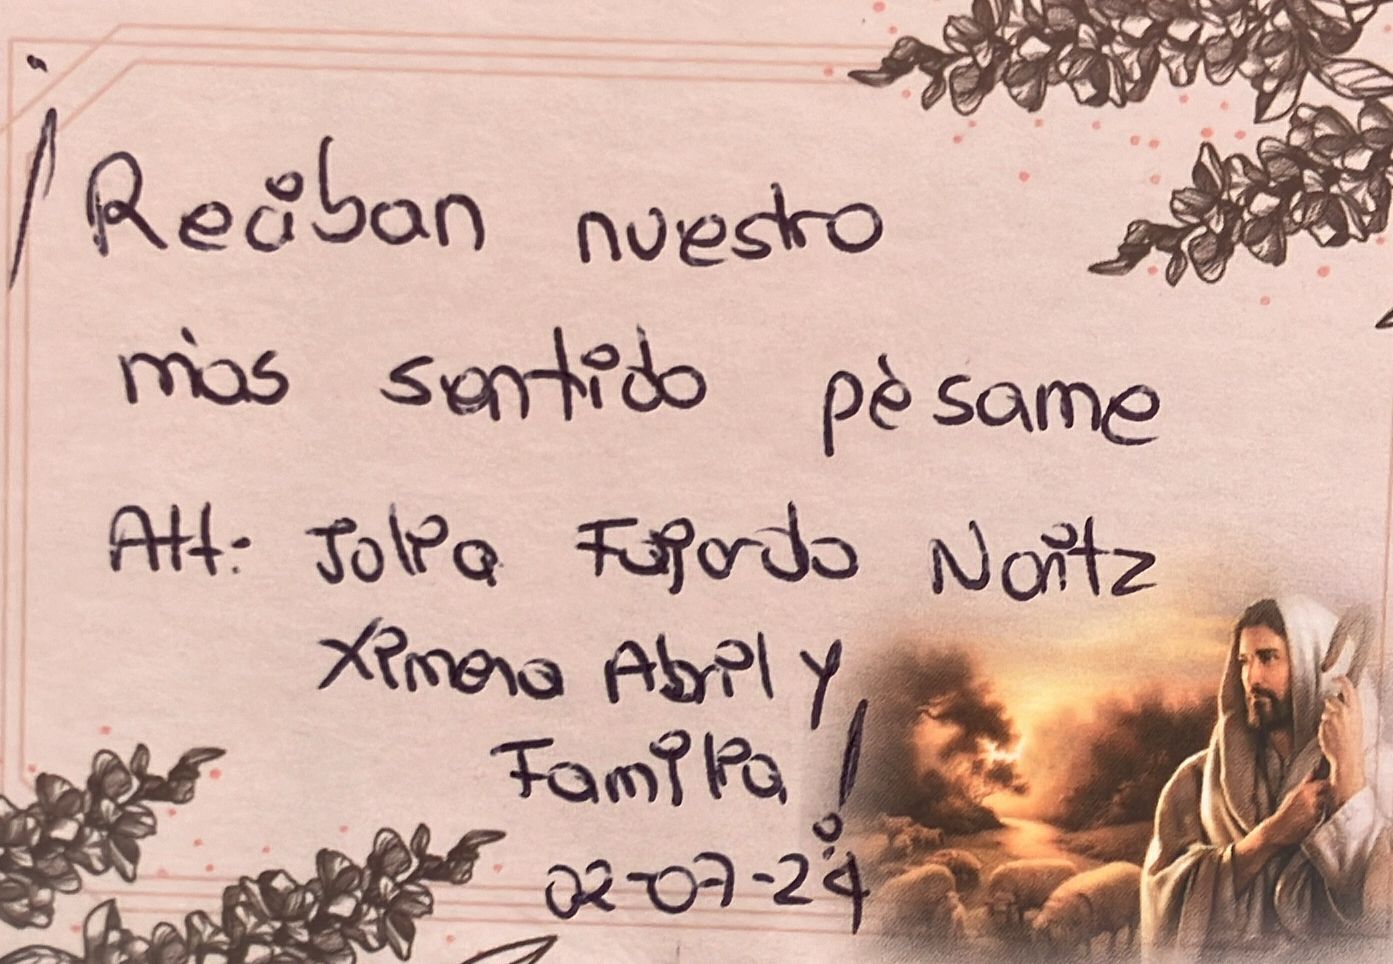 ¡Reciban nuestro
mas sentido pèsame
Att: Jolia Fajardo Naitz
Ximena Abril y
Familia!
02-07-24